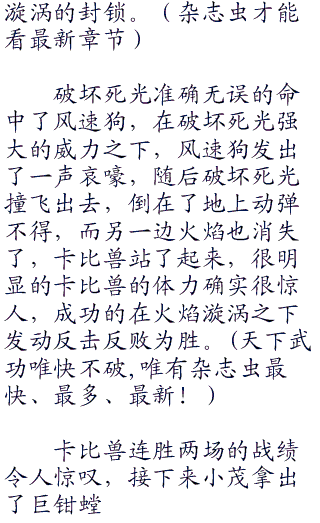 漩涡的封锁。（杂志虫才能
看最新章节）
破坏死光准确无误的命
中了风速狗，在破坏死光强
大的威力之下，风速狗发出
了一声哀嚎，随后破坏死光
撞飞出去，倒在了地上动弹
不得，而另一边火焰也消失
了，卡比兽站了起来，很明
显的卡比兽的体力确实很惊
人，成功的在火焰漩涡之下
发动反击反败为胜。(天下武
功唯快不破,唯有杂志虫最
快、最多、最新！)
卡比兽连胜两场的战绩
令人惊叹，接下来小茂拿出
了巨钳螳